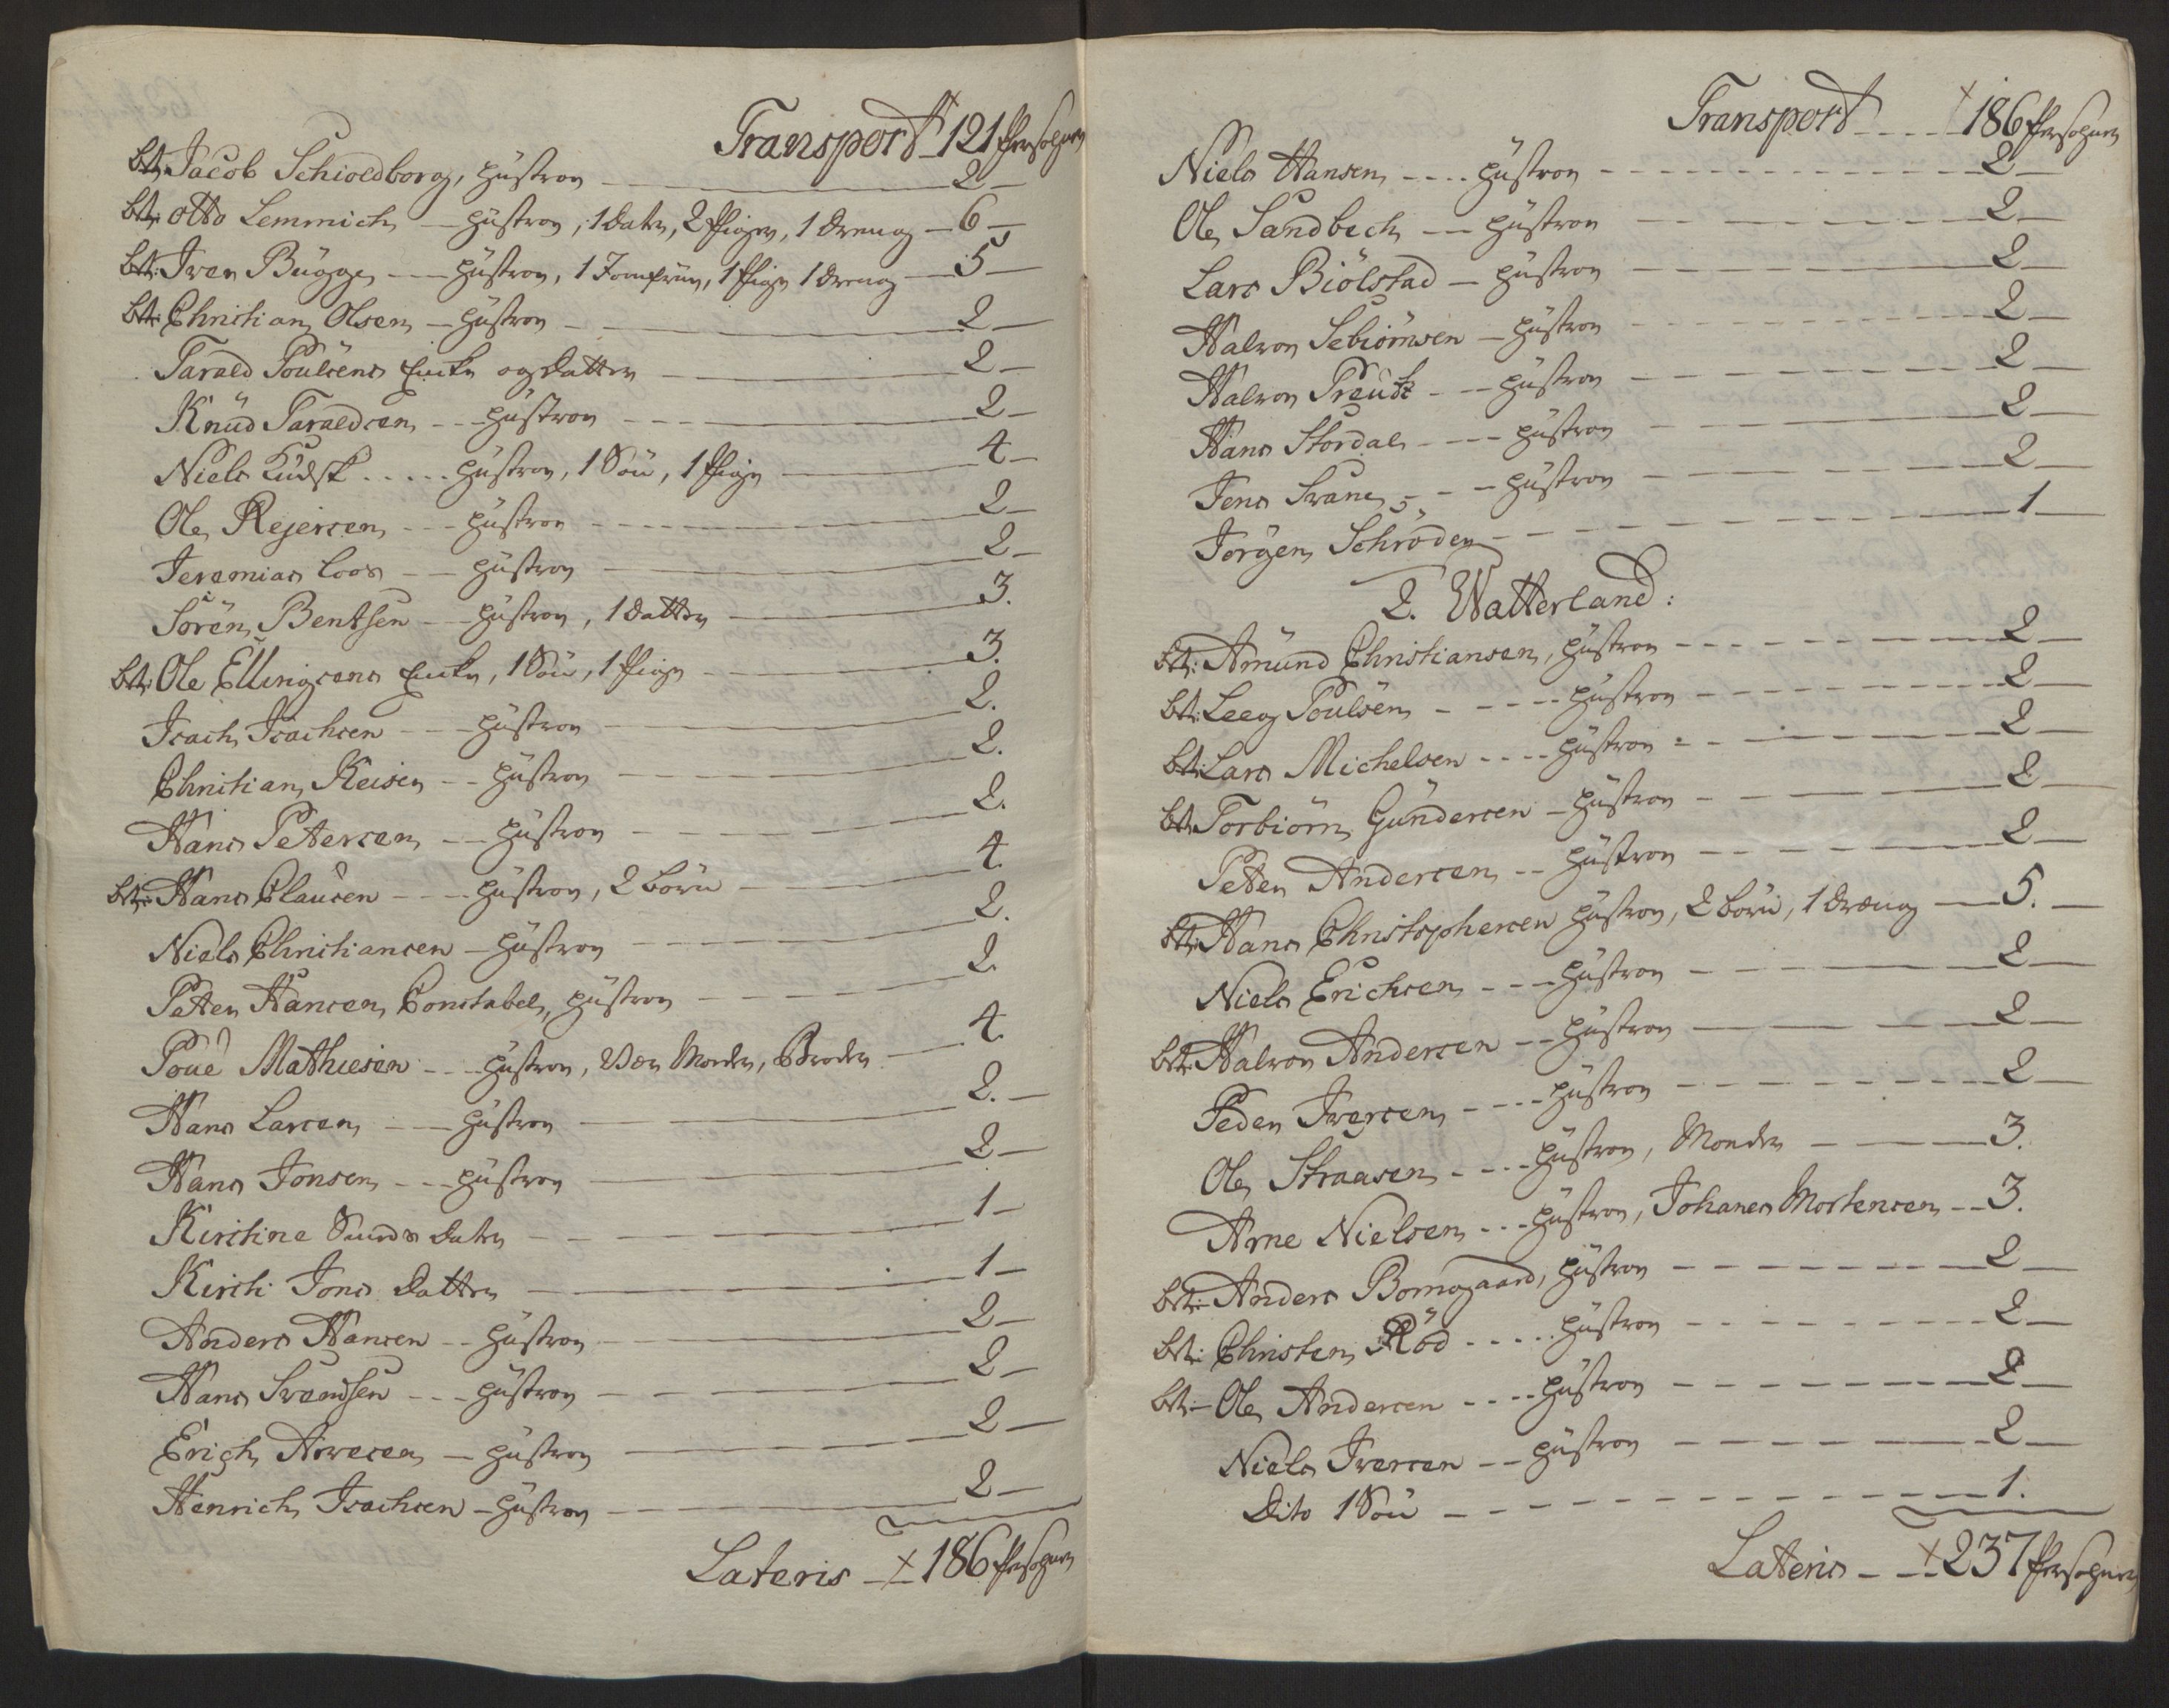 Transport 121 Persohner
bt: Jacob Schioldborg, Hüstrou 2
bt: Otto Lemmich Hüstrou, 1 datr, 2 Piger, 1 dreng 6
bt: Iver Bügge Hüstrou, 1 Jomfrue, 1 Pige 1 dreng 5
bt: Christian Olsen Hüstrou 2
Tarald Poulsens Encke og datter 2
Knüd Taraldsen Hüstrou 2
Niels Kudsk Hüstrou, 1 Sön, 1 Pige 4
Ole Rejersen Hüstrou 2
Jeremias Coos Hüstrou 2
Sören Bentsen Hüstrou, 1 datter 3.
bt: Ole Ellingsens Encke, 1 Sön, 1 Pige 3.
Isach Isachsen Hüstrou 2.
Christian Keiser Hüstrou 2.
Hans Petersen Hüstrou 2.
bt: Hans Clausen Hüstrou, 2 börn 4.
Niels Christiansen Hüstrou 2.
Peter Hansen Constabel, Hüstrou 2.
Poue Mathiesen Hüstrou, Moder, Broder 4.
Hans Larsen Hüstrou 2.
Hans Jonsen Hüstrou 2
Kirstine datr 1
Kirsti Jons Datter 1
Anders Hansen Hüstrou 2
Hans Svendsen Hüstrou 2
Erich Arvesen Hüstrou 2
Henrich Isachsen Hüstrou 2
Lateris 186 Persohner
Transport 186 Persohner
Niels Hansen Hüstrou 2
Ole Sandbech Hüstrou 2
Lars Biölstad Hüstrou 2
Halvor Sebiörnsen Hüstrou 2
Halvor Hüstrou 2
Hans Stordal Hüstrou 2
Jens Svane Hüstrou 2
Jörgen Schröder 1
2. Watterland:
bt: Amünd Christiansen, Hüstrou 2
bt: Leeg Poulsen Hüstrou 2
bt: Lars Michelsen Hüstrou 2
bt: Torbiörn Gündersen Hüstrou 2
Peter Andersen Hüstrou 2
bt: Hans Christophersen Hüstrou, 2 börn, 1 dreng 5.
Niels Erichsen Hüstrou 2
bt: Halvor Andersen Hüstrou 2
Peder Iversen Hüstrou 2
Ole Straasen Hüstrou, Moder 3.
Arne Nielsen Hüstrou, Johanes Mortensen 3.
bt: Anders Bomgaard, Hüstrou 2
bt: Christen Röd Hüstrou 2
bt: Ole Andersen Hüstrou 2
Niels Iversen Hüstrou 2
Dito 1 Sön 1.
Lateris 237 Persohner